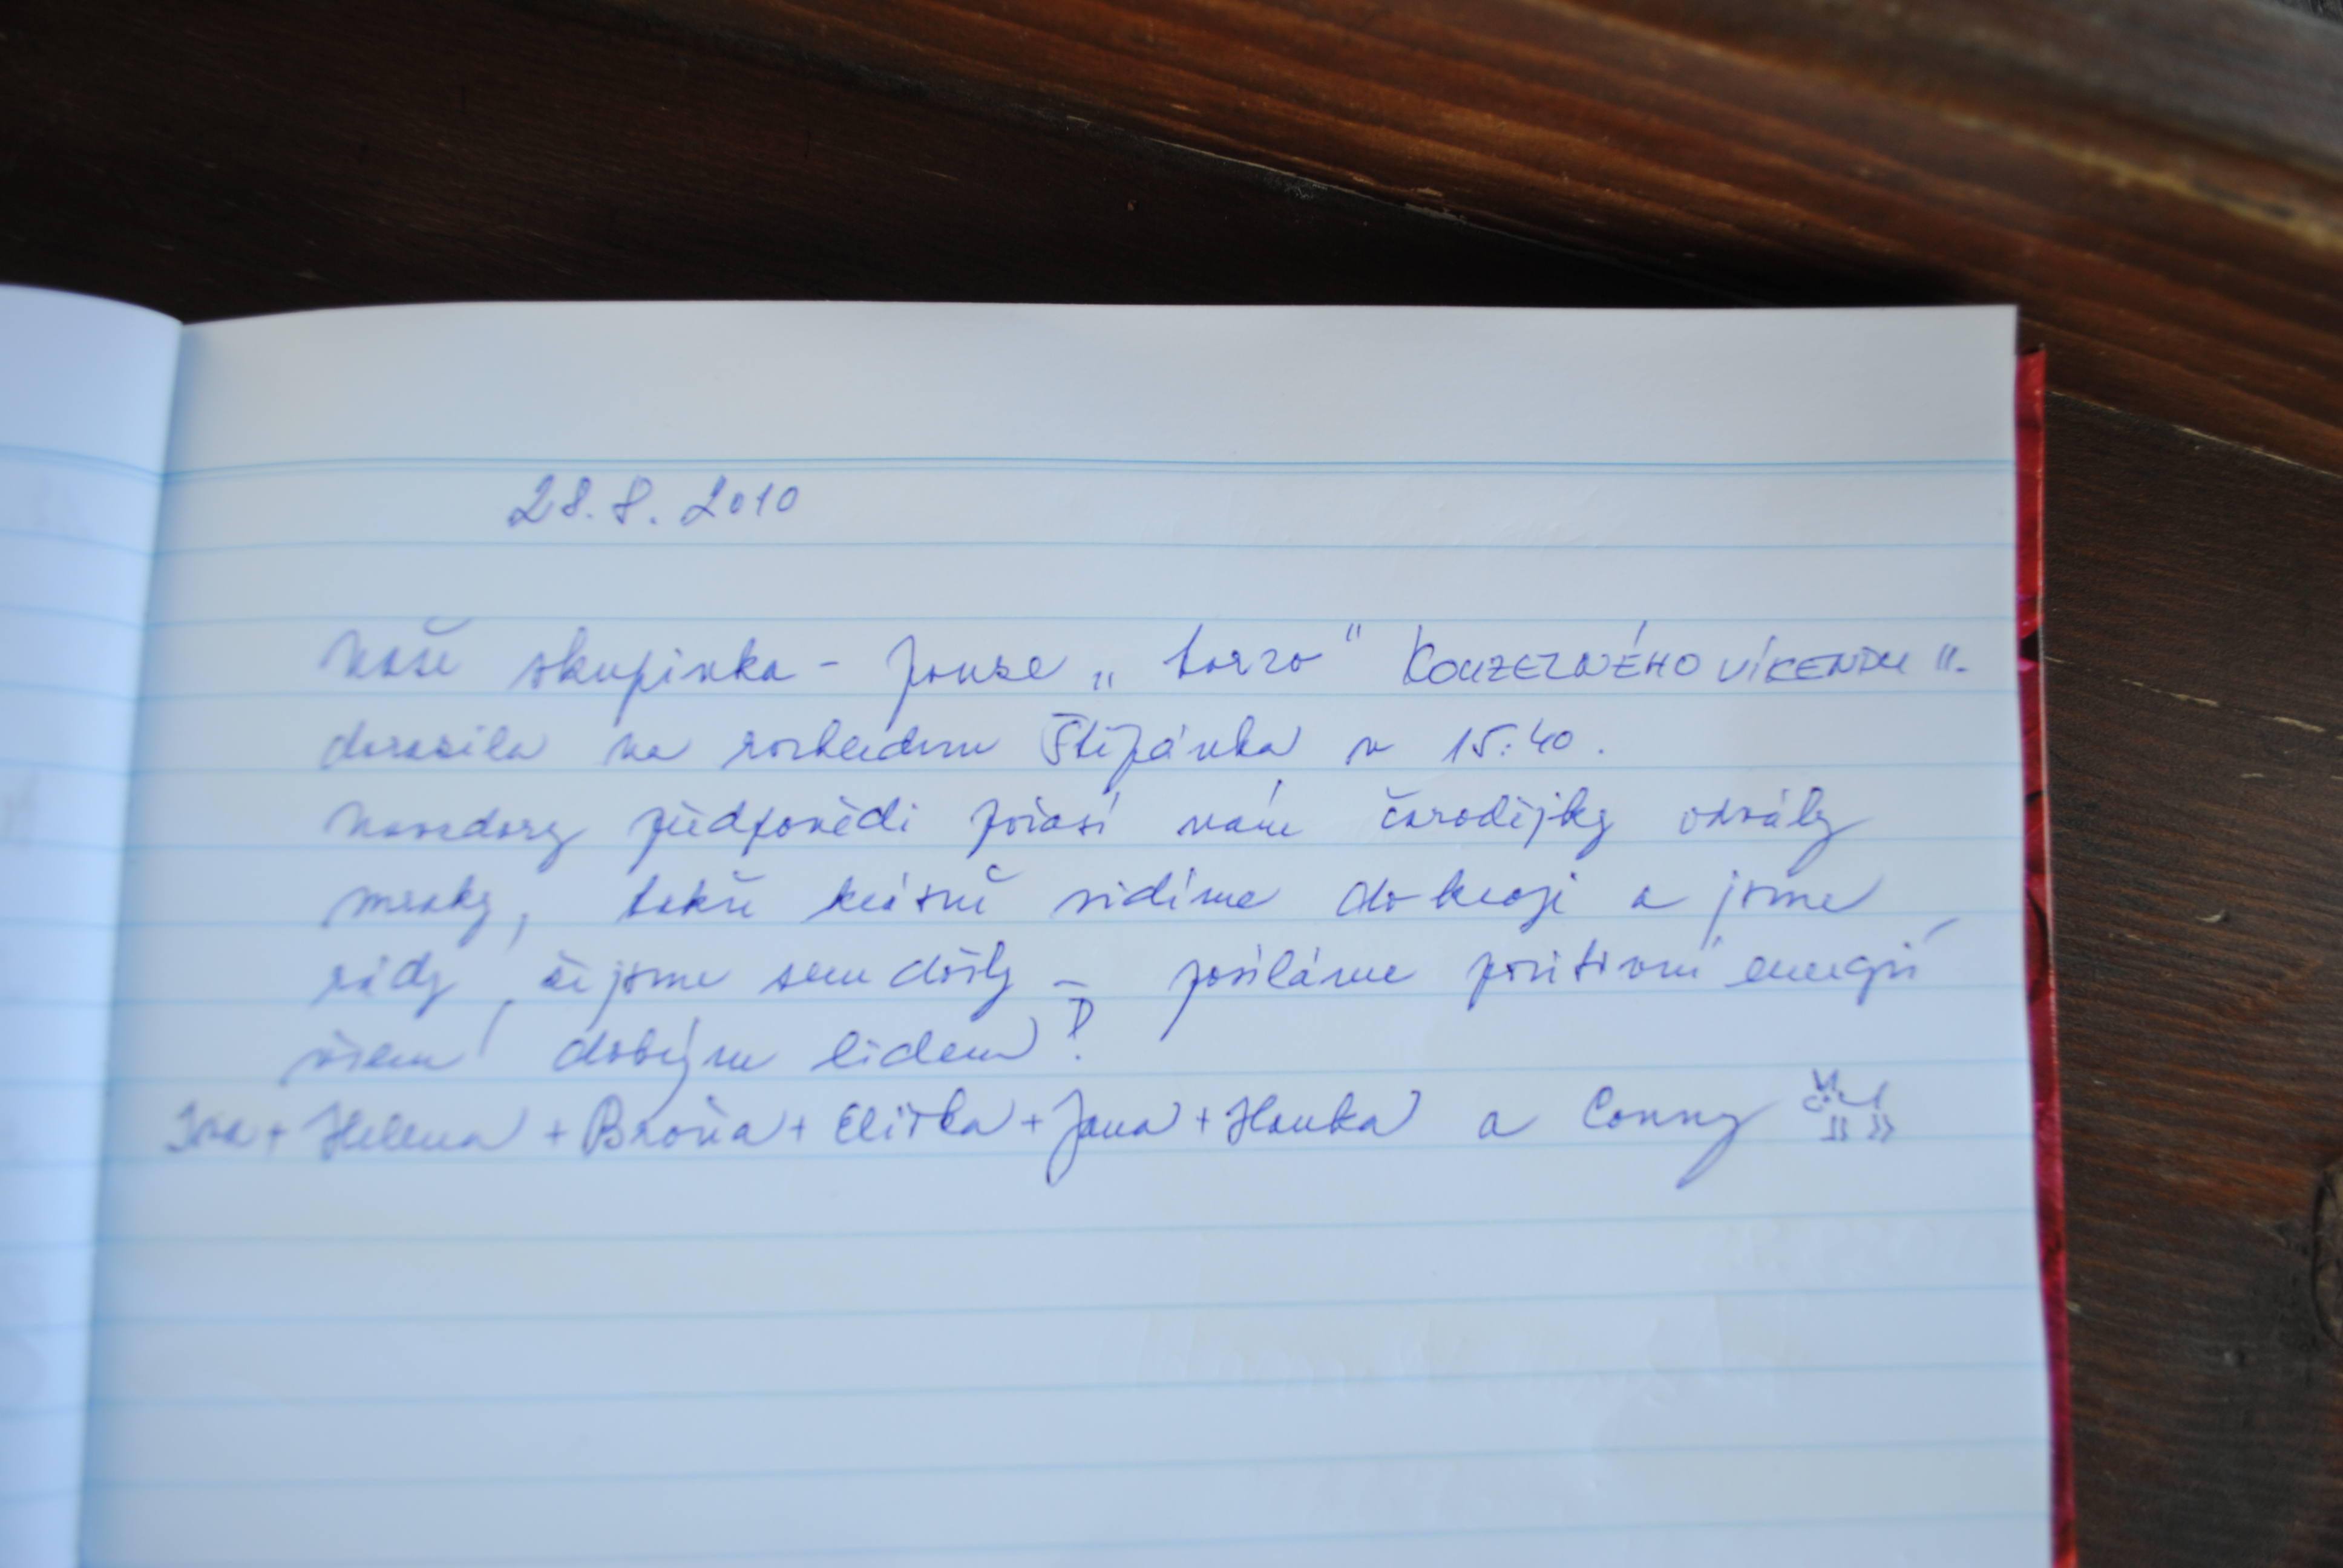 28. 8. 2010
Naše skupinka - pouze „ torzo " KOUZELNÉHO VÍKENDU ".
dorazila na rozhlednu Štěpánka v 15:40.
Navzdory předpovědi počasí nám čarodějky odvály
mraky, takže krásně vidíme do kraji a jsme
rády, že jsme sem došly - posíláme pozitivní energii
všem dobrým lidem!
Iva + Helena + Broňa + Eliška + Jana + Hanka a Conny